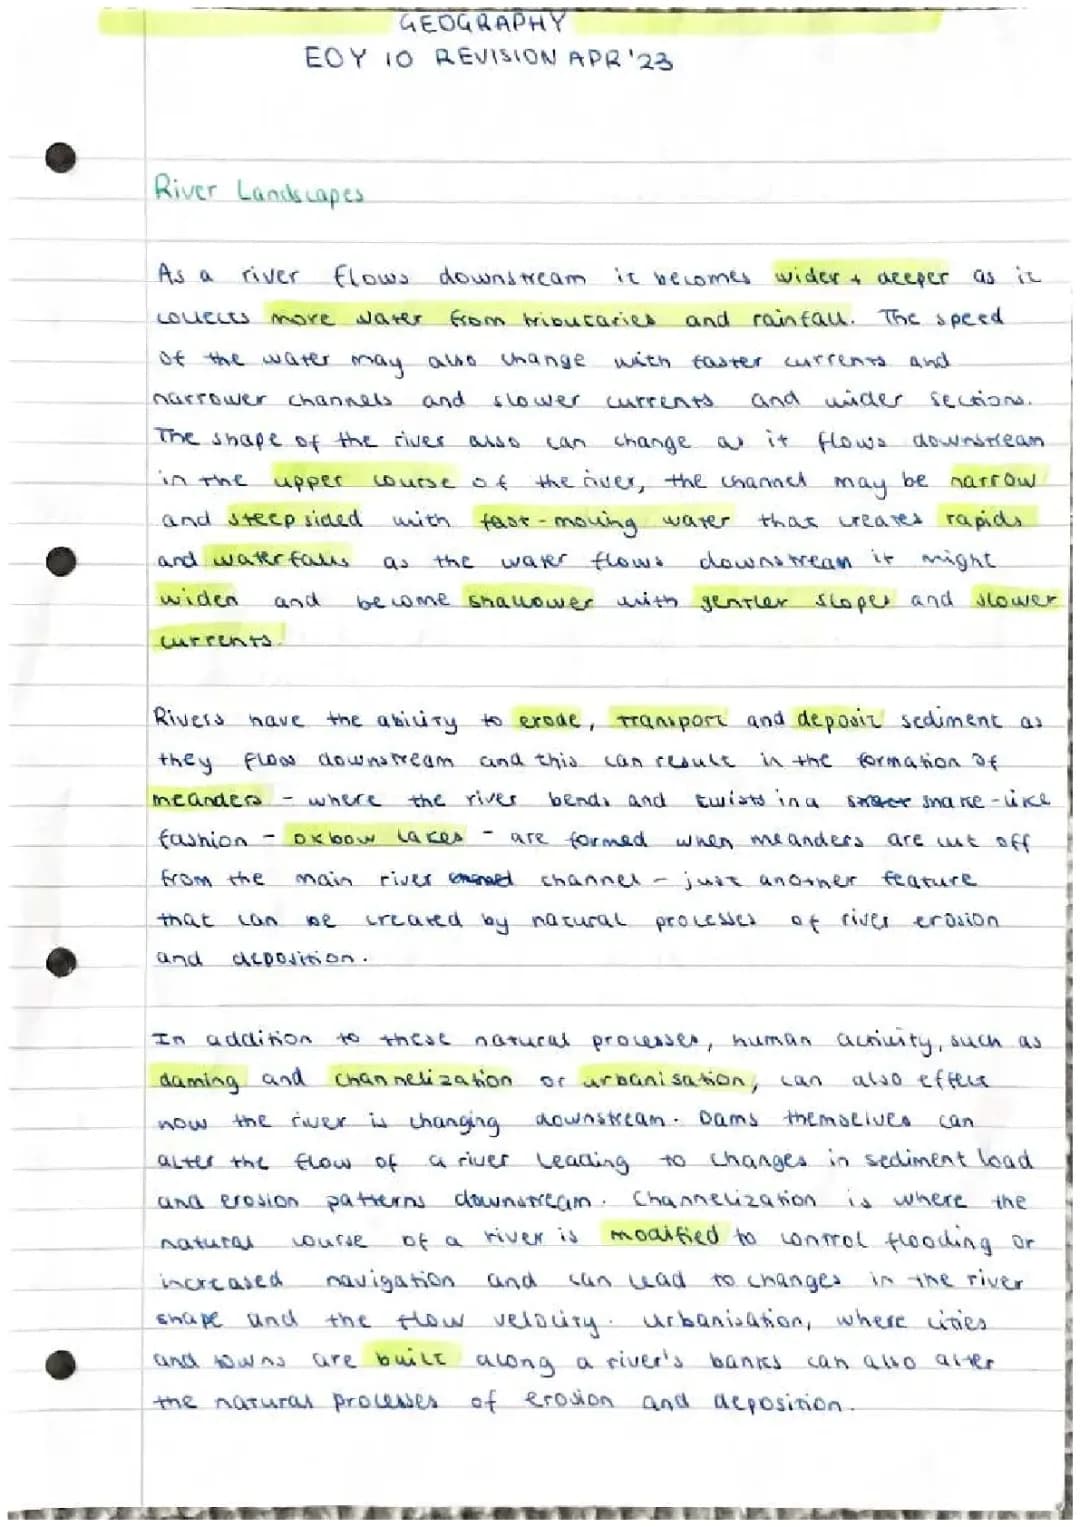 GEOGRAPHY
EOY 10 REVISION APR '23
River Landscapes
As a river flows downstream it becomes wider + deeper as it
collects more water from tributaries and rainfall. The speed
of the water may also change with faster currents and
narrower channels and slower currents and wider sections.
The shape of the river also can change as it flows downstream
in the upper course of the river, the channel may be narrow
and steep sided with fast-moving water that creates rapids
and waterfalls as the water flows downstream it might
widen and become shallower with gentler slopes and slower
currents.
Rivers have the ability to erode, transport and deposit sediment as
they flow downstream and this can result in the formation of
meanders - where the river bends and twists in a snake-like
fashion - oxbow lakes - are formed when meanders are cut off
from the main river channel - just another feature
that can be created by natural processes of river erosion
and deposition.
In addition to these natural processes, human activity, such as
daming and channelization or urbanisation, can also effect
how the river is changing downstream. Dams themselves can
alter the flow of a river leading to changes in sediment load
and erosion patterns downstream. Channelization is where the
natural course of a river is modified to control flooding or
increased navigation and can lead to changes in the river
shape and the flow velocity. urbanisation, where cities
and towns are built along a river's banks can also alter
the natural processes of erosion and deposition.